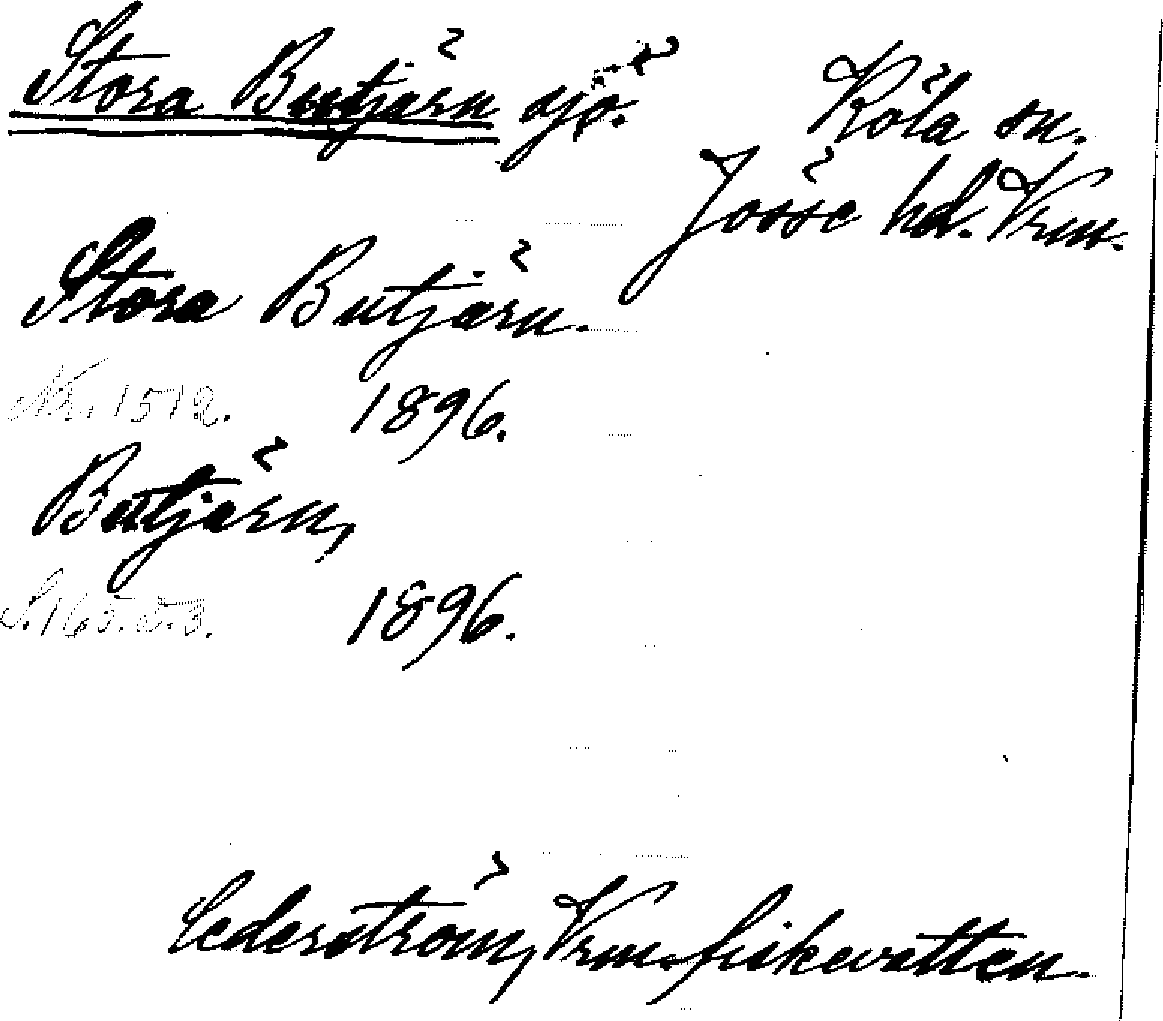 Stora Butjärn sjö.
Köla sn.
Jösse hd. Vrm.
Stora Butjärn.
Nr. 1512. 1896.
Butjärn,
S. 165. 1896.
Cederström, Vrm. fiskevatten.